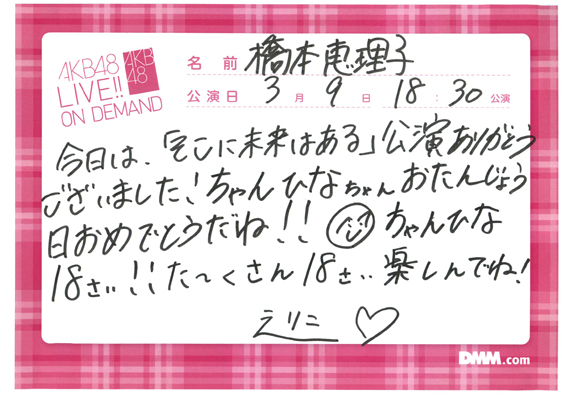 AKB48
LIVE!!
ON DEMAND
AKB
48
名前 橋本恵理子
公演日 3月9日 18:30公演
今日は、「そこに未来はある」公演ありがとう
ございました!ちゃんひなちゃんおたんじょう
日おめでとうだね!! ちゃんひな
18さい!!た〜くさん18さい楽しんでね!
えりこ♡
DMM.com